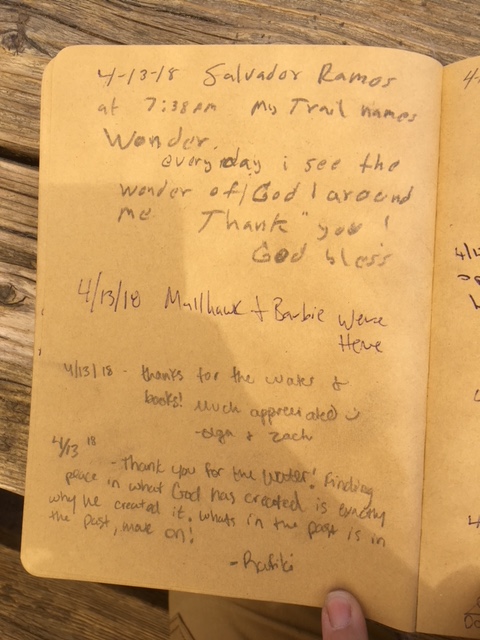 4-13-18 Salvador Ramos
at 7:38am My Trail names
Wonder.
everyday i see the
wonder of God around
me Thank you!
God bless
4/13/18 Mullhawk + Barbie were
Here
4/13/18 - thanks for the water &
books! Much appreciated
- & Zach
4/13 18
- Thank you for the water! Finding
peace in what God has created is exactly
why he created it. whats in the past is in
the past, move on!
- Rafiki
4
4/1
4